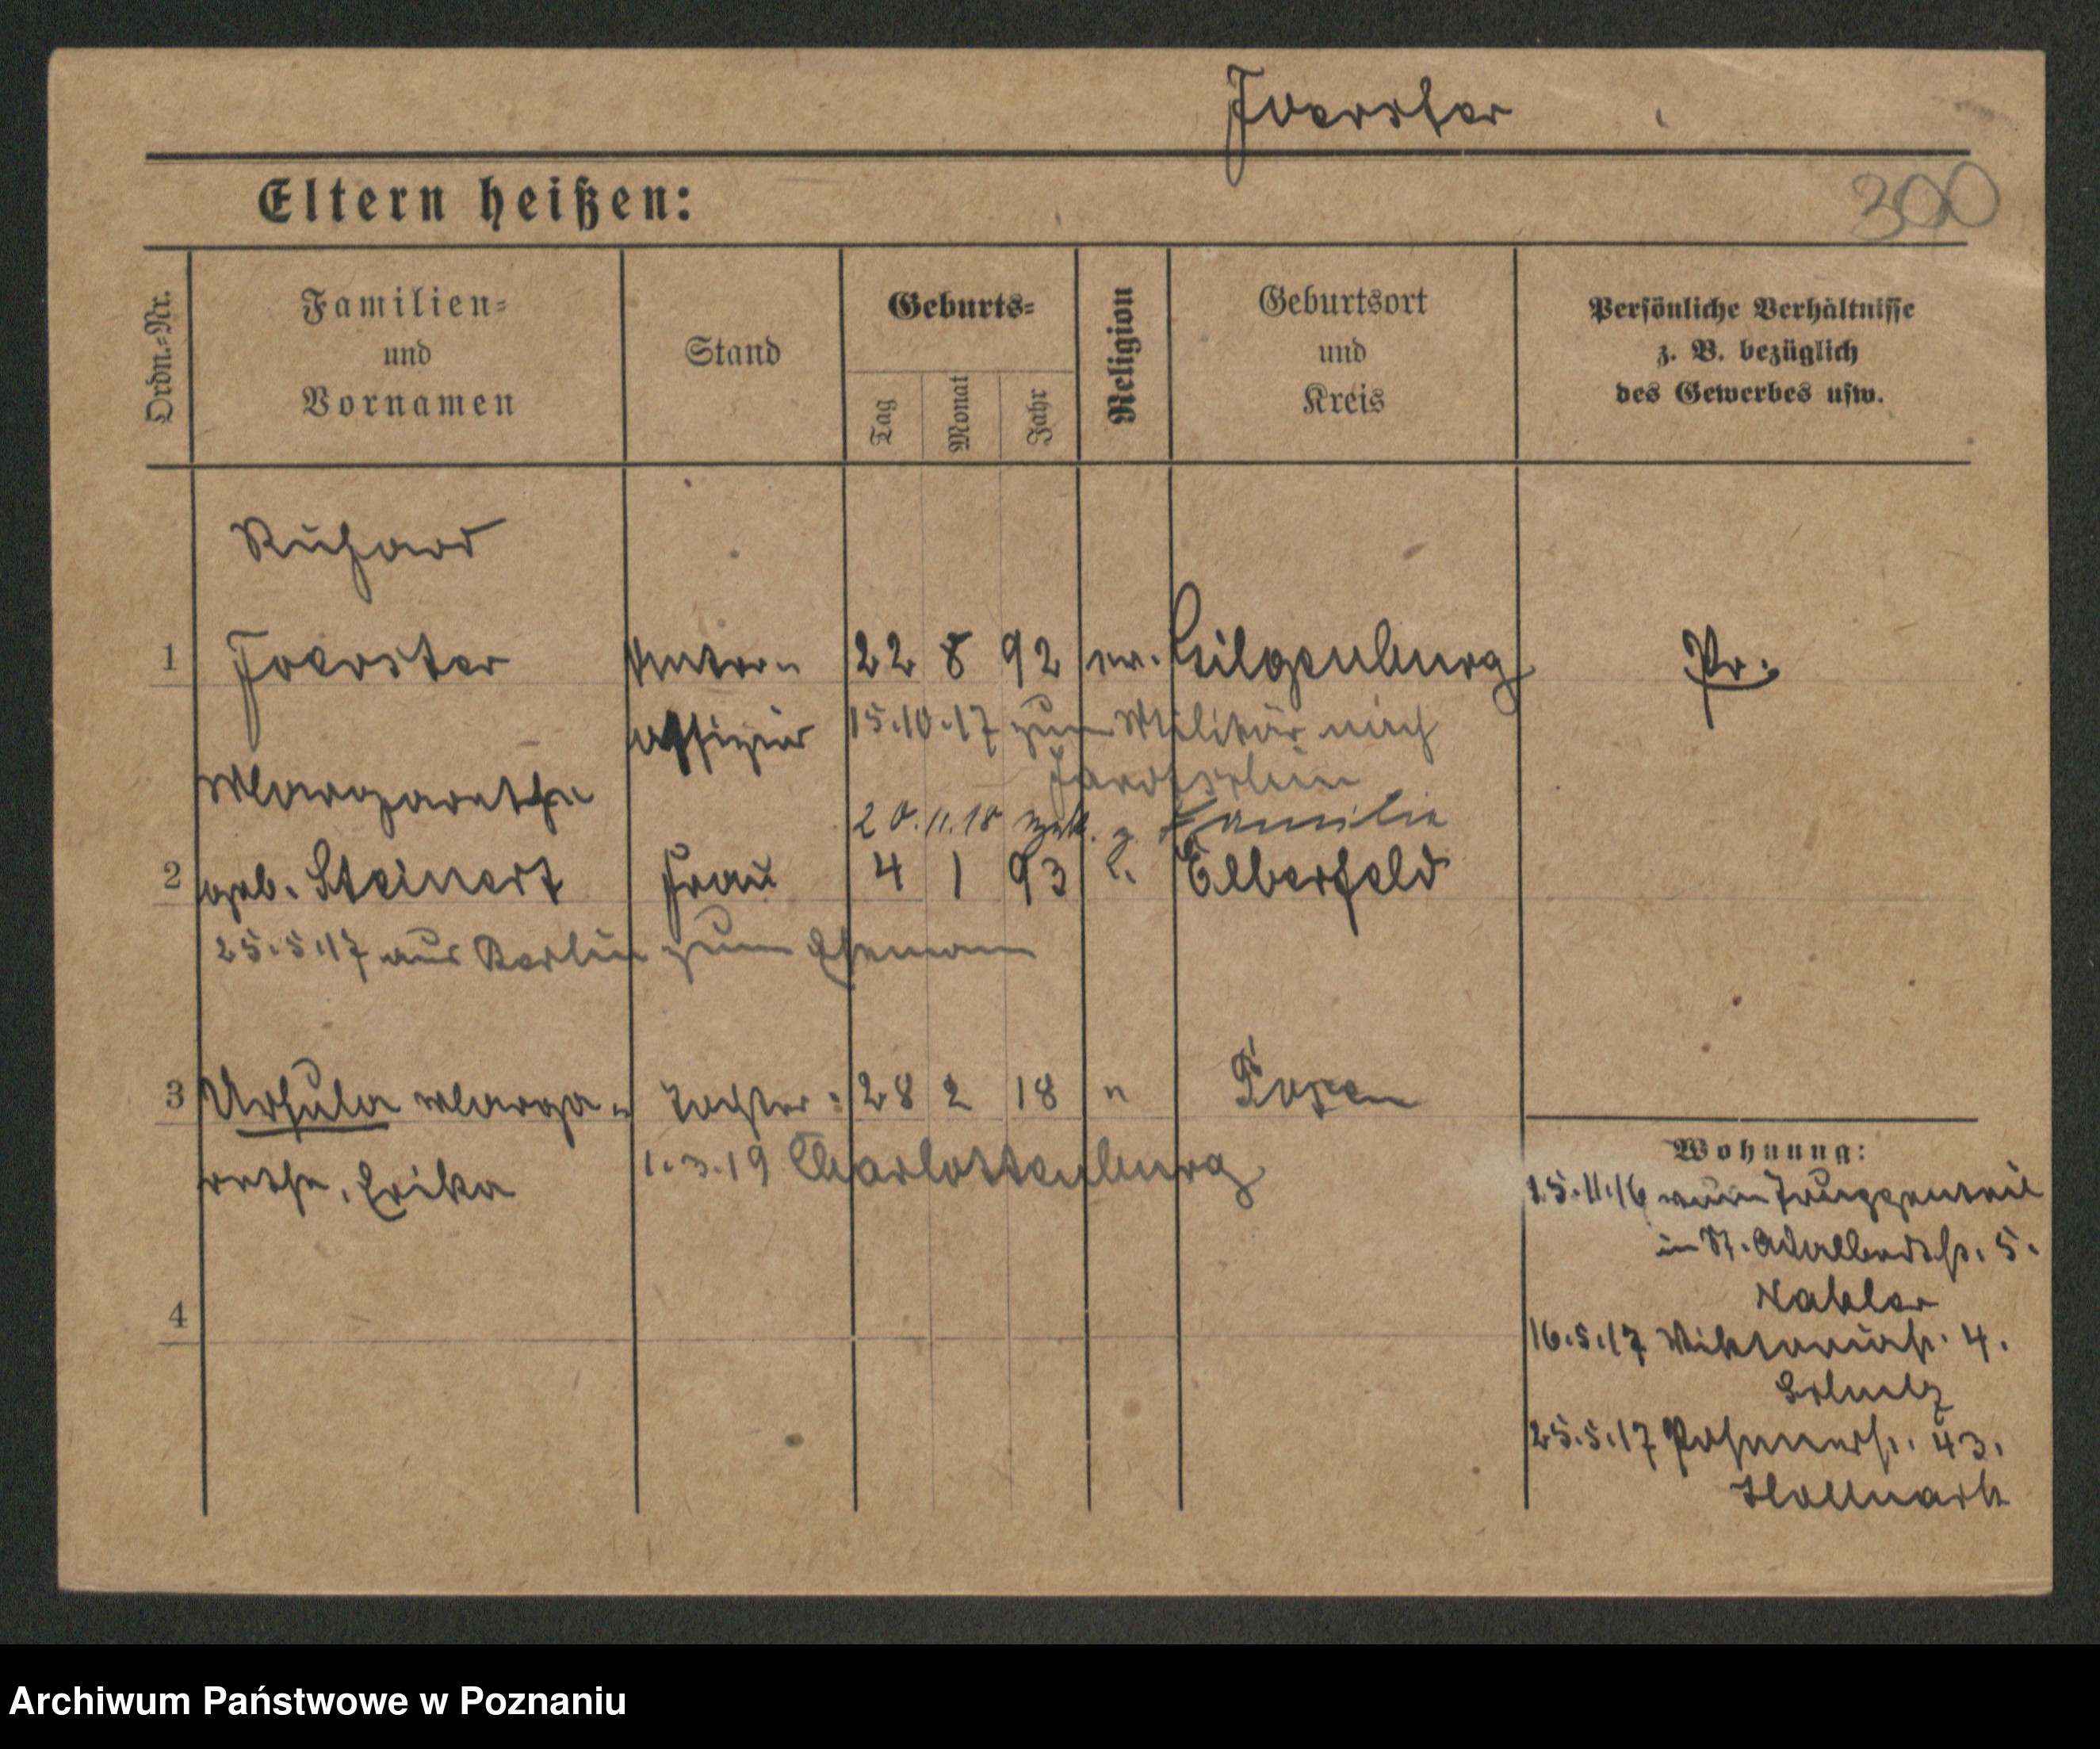 Foerster
Eltern heißen:
300
Ordn.-Nr.
Familien-
und
Vornamen
Stand
Geburts-
Tag
Monat
Jahr
Religion
Geburtsort
und
Kreis
Persönliche Verhältnisse
z. B. bezüglich
des Gewerbes usw.
Richard
1 Foerster Unter- 22 8 92 ev. Gilgenburg Pr.
offizier 15.10.17 zum Militär nach
Jarotschin
Margarethe
20.11.18 zur. z. Familie
2 geb. Steinert Frau 4 1 93 e. Elberfeld
25.5.17 aus Berlin zum Ehemann
3 Ursula Marga- Tochter 28 2 18 " Posen
rethe, Erika 1.3.19 Charlottenburg
4
Wohnung:
15.11.16 vom Truppenteil
in St. Adalbertstr. 5.
16.5.17 Viktoriastr. 4.
Schulz
25.5.17 Posenerstr. 43.
Archiwum Państwowe w Poznaniu